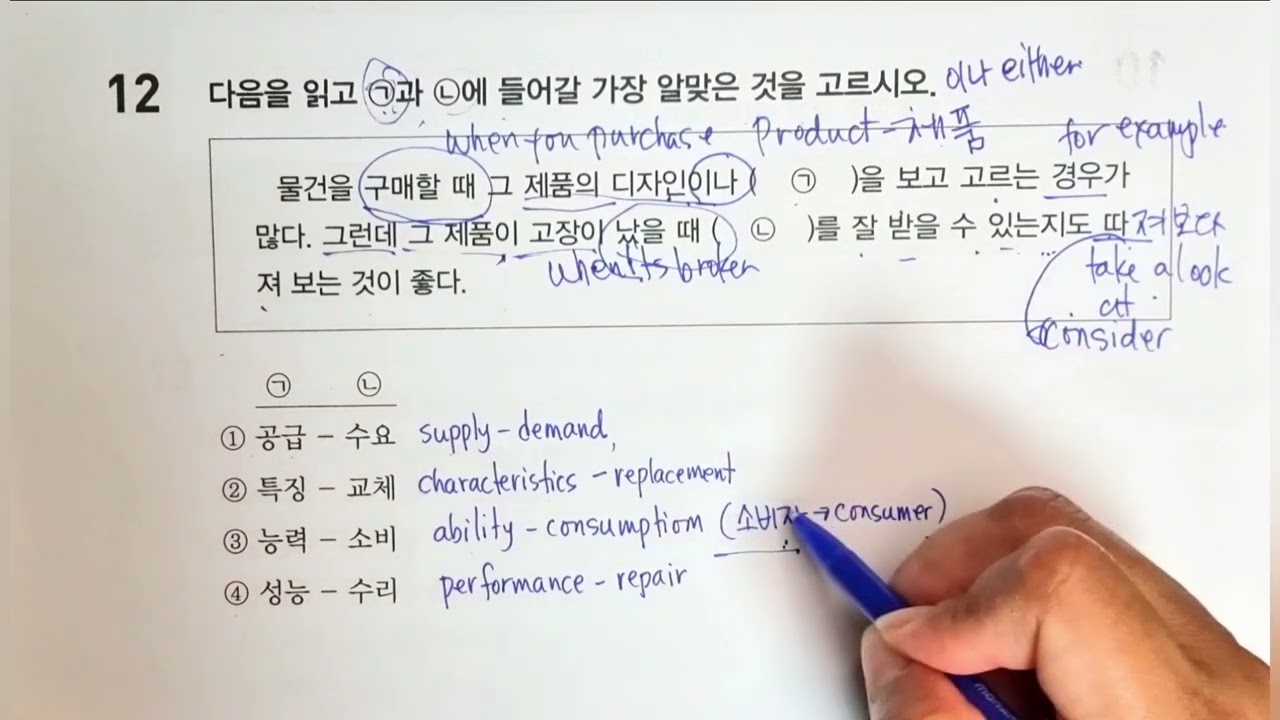 12 다음을 읽고 ㉠과 ㉡에 들어갈 가장 알맞은 것을 고르시오. 이나 either
when you purchase product - 제품 for example
물건을 구매할 때 그 제품의 디자인이나 ( ㉠ )을 보고 고르는 경우가
많다. 그런데 그 제품이 고장이 났을 때 ( ㉡ )를 잘 받을 수 있는지도 따 져보다
when its broken take a look
져 보는 것이 좋다. at
consider
㉠ ㉡
① 공급 - 수요 supply - demand,
② 특징 - 교체 characteristics - replacement
③ 능력 - 소비 ability - consumption (소비자 → consumer)
④ 성능 - 수리 performance - repair